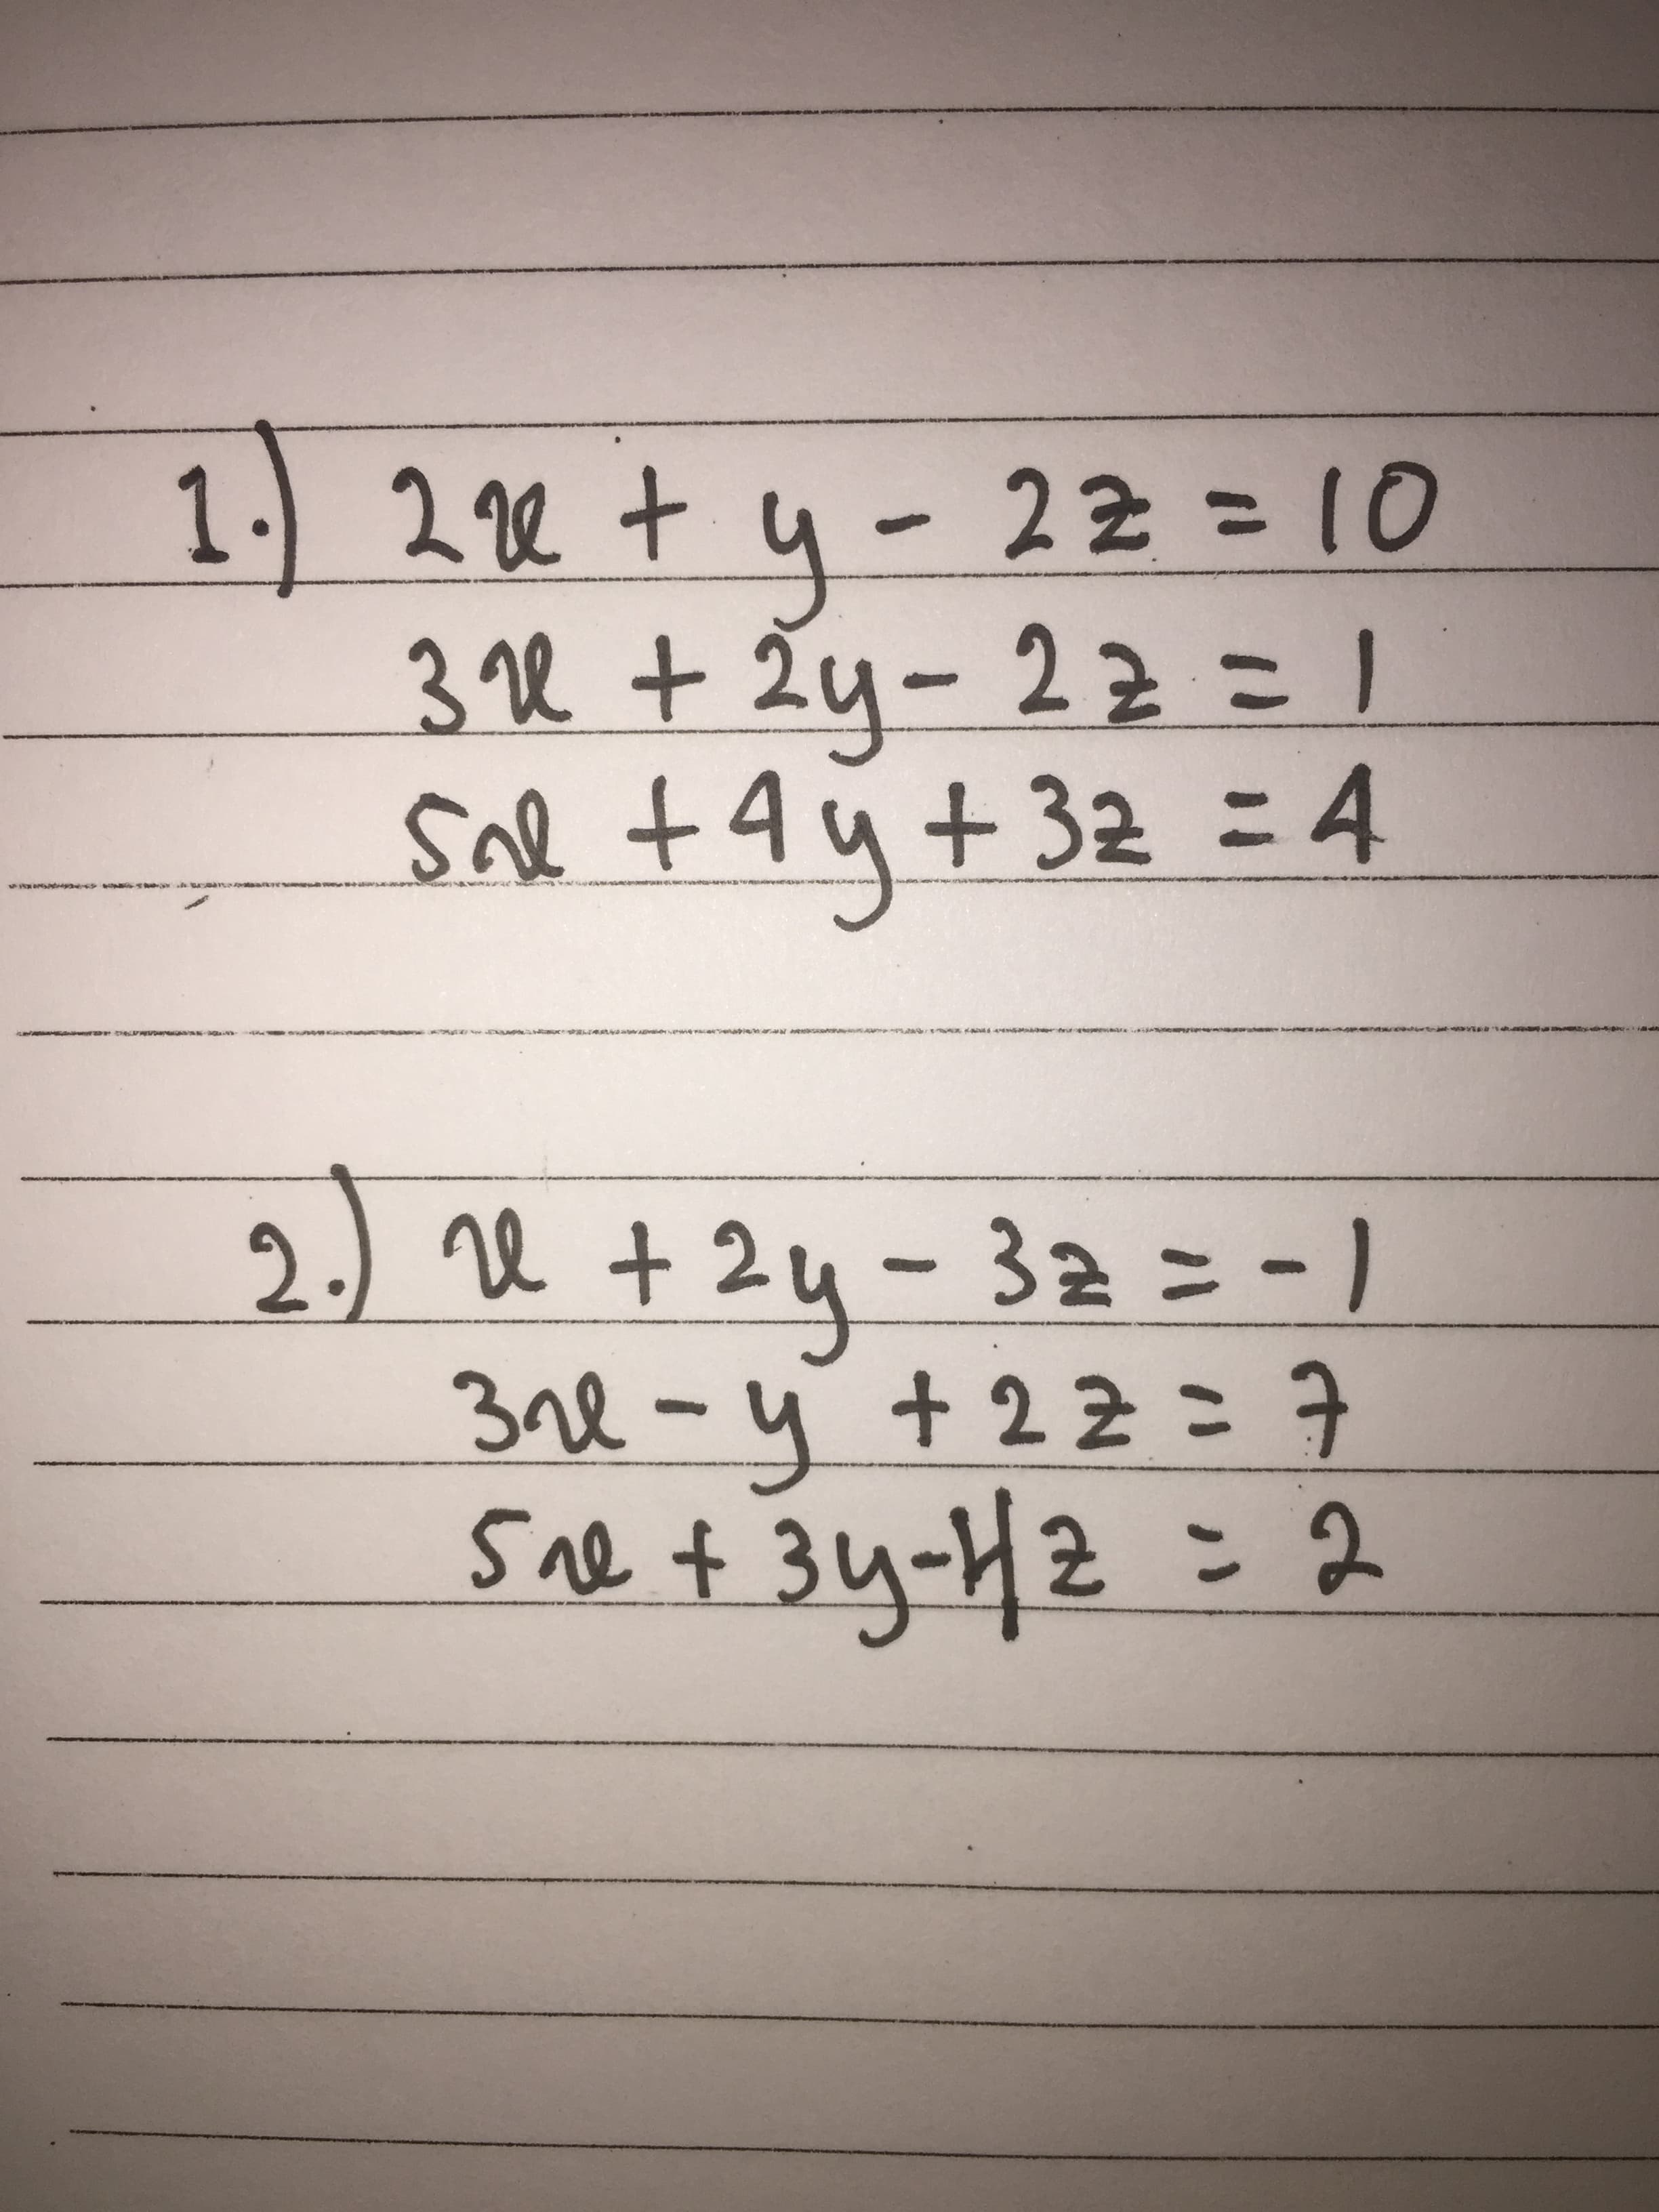 1.) 2x + y - 2z = 10
3x + 2y - 2z = 1
5x + 4y + 3z = 4
2.) x + 2y - 3z = -1
3x - y + 2z = 7
5x + 3y - 4z = 2